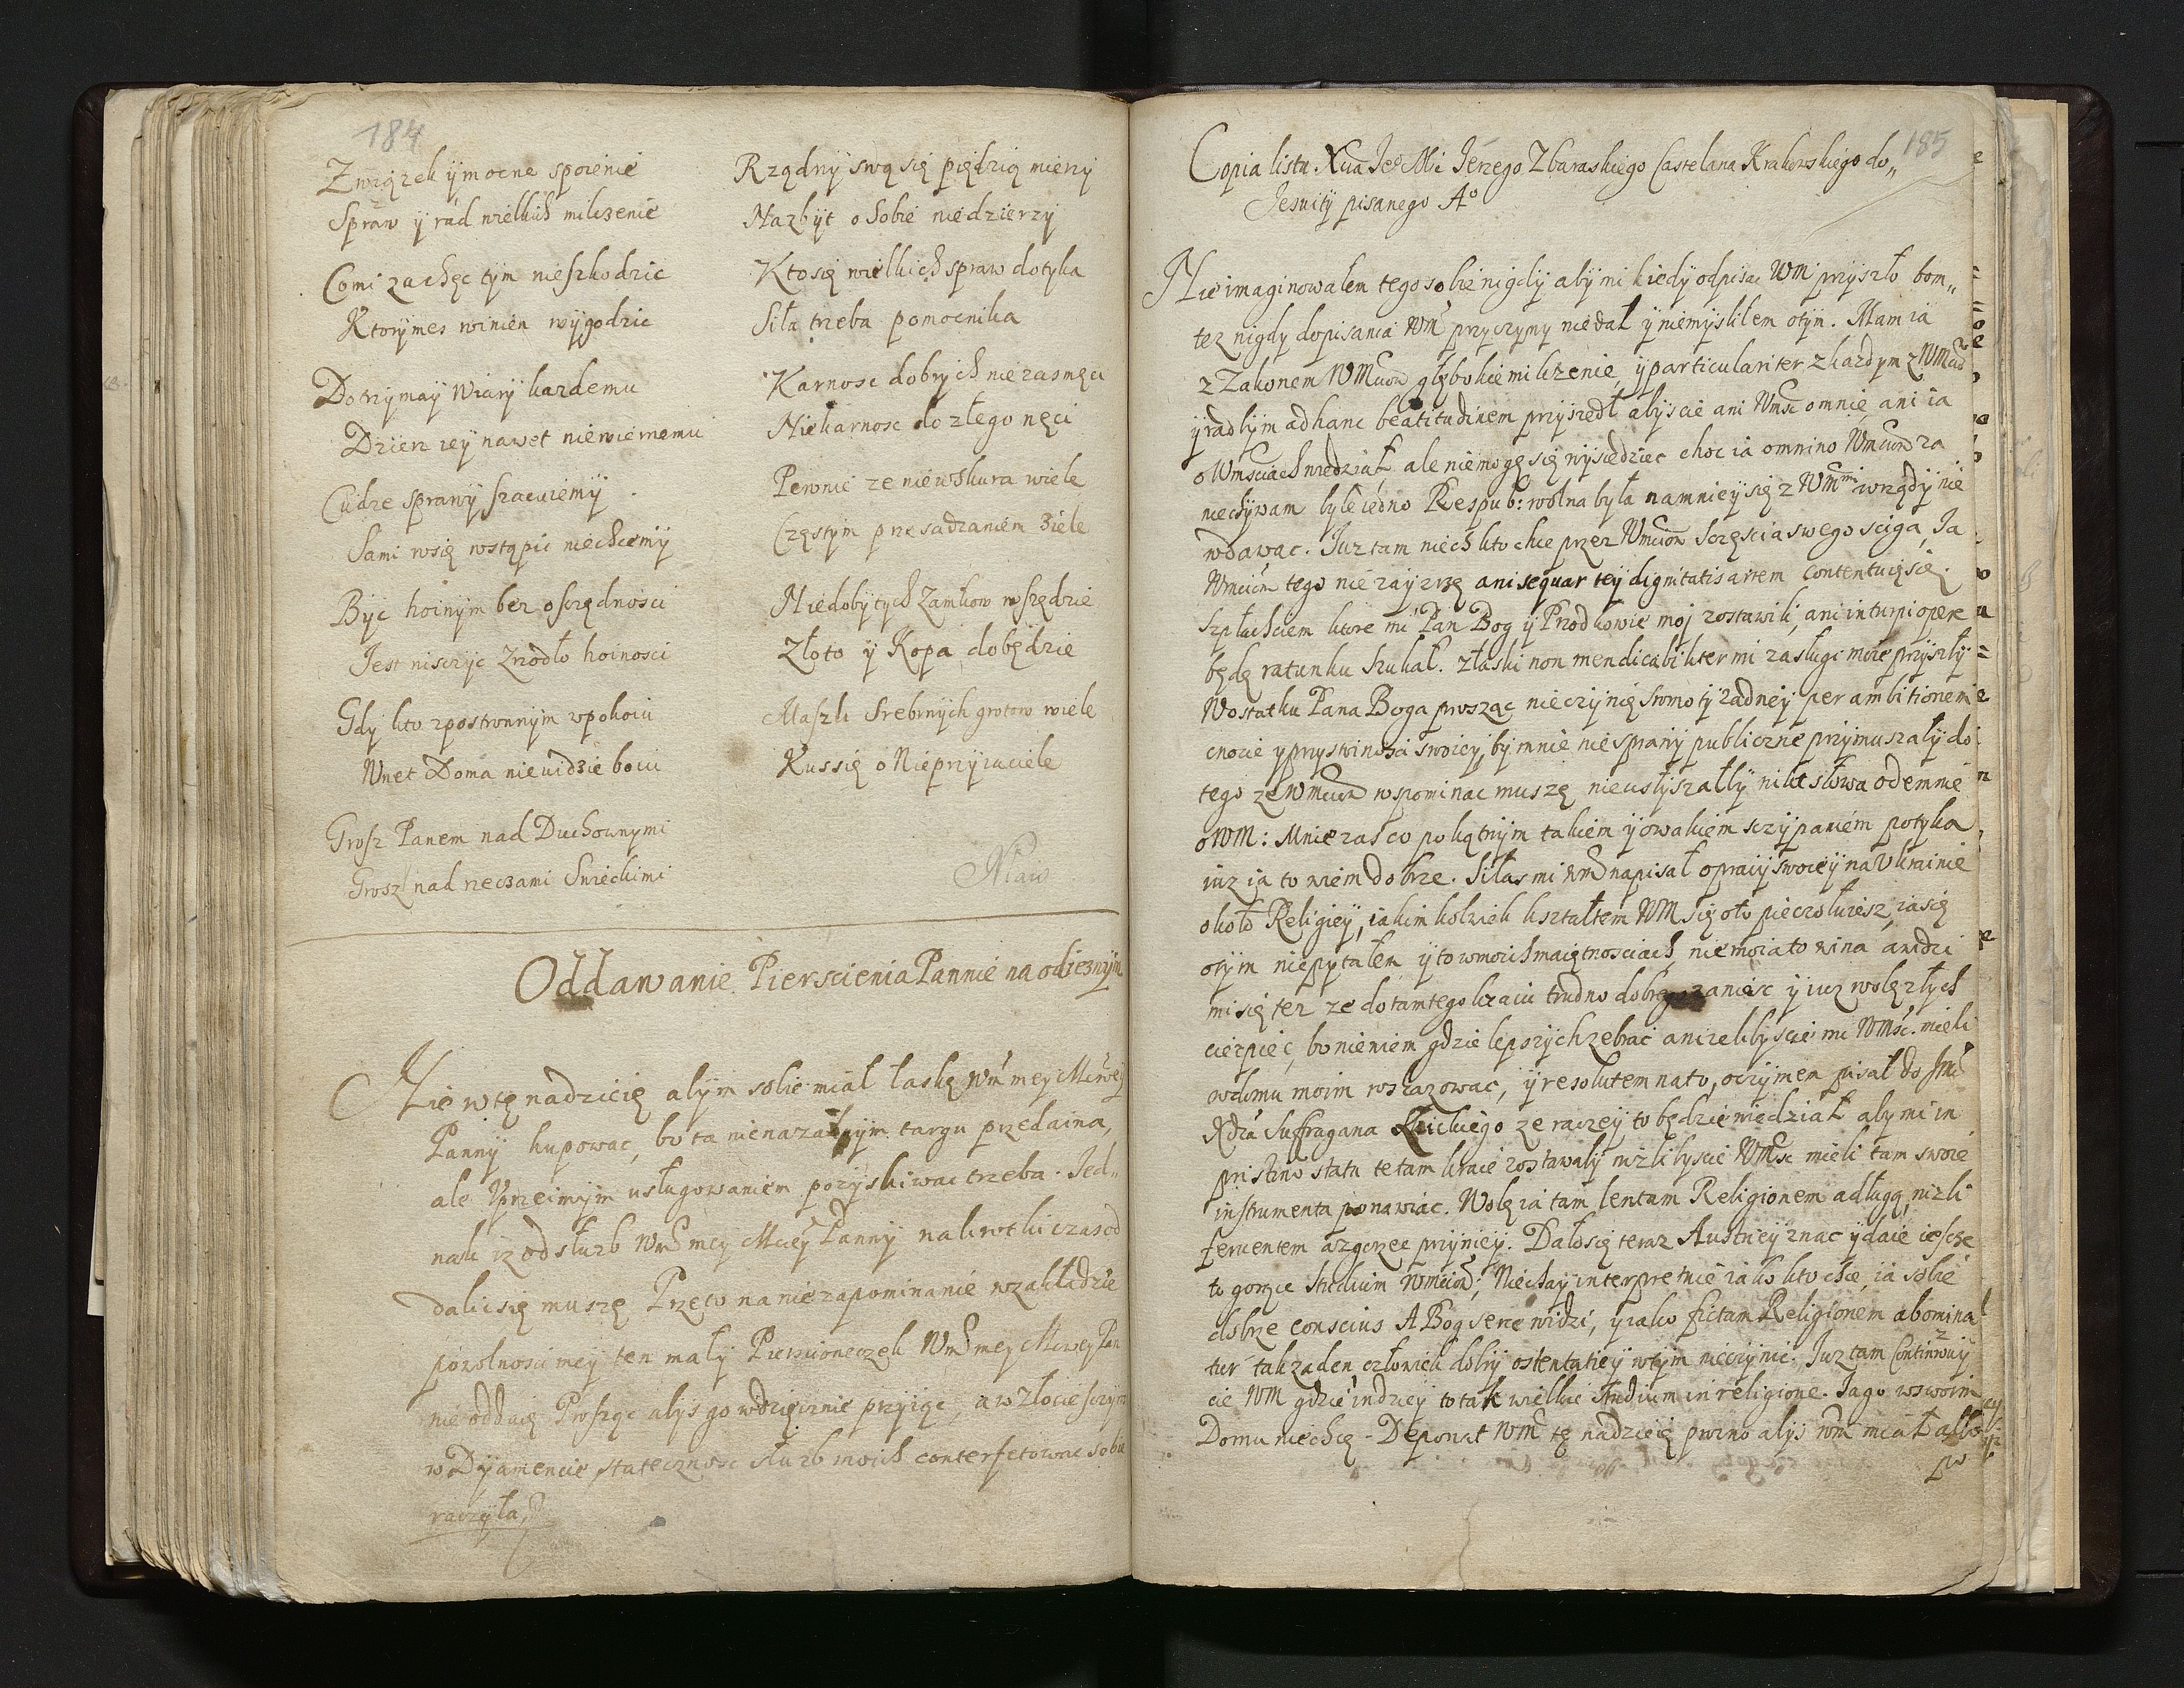 184
Związek ÿ mocne spoienie
Spraw ÿ rad wielkich milczenie
Co mi zachęc tym nieszkodzic
Ktorymes winien wÿgodzic
Dotrzymaÿ Wiarÿ kazdemu
Dzierz ieÿ nawet niewiernemu
Cudze sprawÿ szacuiemÿ
Sami wsię wstąpic niechcemÿ
Bÿc hoinÿm bez oszczędnosci
Iest nisczÿc Zrodło hoinosci
Gdÿ kto zpostronnÿm wpokoiu
Wnet Doma nieuidzie boiu
Grosz Panem nad Duchownymi
Grosz nad rzeczami Swieckimi
Rządnÿ swą się piędzią mierzÿ
Nazbÿt o sobie niedzierzÿ
Kto się wielkich spraw dotyka
Siła trzeba pomocnika
Karnosc dobrÿch niezasmęci
Niekarnosc do złego nęci
Pewnie ze niewskura wiele
Częstÿm przesadzaniem ziele
Niedobÿtÿch Zamkow wszędzie
Złoto ÿ Kopa dobędzie
Maszli Srebrnÿch grotow wiele
Kussię o Nieprzÿiaciele
Oddawanie Pierscienia Pannie na odieznÿm
Nie wtę nadzieię abÿm sobie miał łaskę Wm meÿ
Pannÿ kupowac, bo ta nienazadnÿm targu przedaina,
ale Vprzeimÿm usługowaniem pozÿskiwac trzeba. Ied„
nak iz od słuzb Wm meÿ Mciey Pannÿ nakrotki czas od
dalic się muszę Przeto na nie zapominanie wzakładzie
powolnosci meÿ ten małÿ Piersioneczek Wm meÿ Pan
nie oddaię Proszqc abÿs go wdzięcznie przÿiąc, a w złocie
w Dÿamencie statecznosc słuzb moich conterfetowac sobie
raczÿła,
185
Copia listu Xcia Ieo Mi Ierzego Zbaraskiego Castelana Krakowskiego do„
Iesuitÿ pisanego Ao
Nie imaginowałem tego sobie nigdÿ abÿ mi kiedÿ odpisac WM przÿszło bom„
tez nigdy dopisania Wm przyczyny niedał ÿ niemÿsliłem otÿm. Mam ia
z Zakonem WMciow głębokie milczenie, ÿ particulariter zkazdym z WMciow
ÿ radbÿm ad hanc beatitudinem przÿszedł abÿscie ani Wmsc o mnie ani ia
o Wmsciach wiedział, ale niemogę się wÿsiedziec choc ia omnino Wmciow za
niechÿwam byle iedno Respub: wolna była namnieÿ się z Wmmi wzgdÿ nie
wdawac. Iuz tam niech kto chce przez Wmciow sczęscia swego sciga, Ia
Wmciom tego nie zaÿzrzę ani sequar teÿ dignitatis artem contentuię się
Szpłachciem ktore mi Pan Bog ÿ Przodkowie moj zostawili, ani in turpi opere
będę ratunku szukał. Złaski non mendicabiliter mi zasługi moie przÿszłÿ
Wostatku Pana Boga prosząc nieczÿnię sromotÿ zadneÿ per ambitionem
cnocie ÿ przystoinosci swoieÿ, bÿ mnie nie sprawÿ publiczne przÿmuszałÿ do
tego ze Wmciow wspominac muszę nieusłÿszałbÿ nikt słowa odemnie
o WM: Mnie zas co pokątnÿm takiem ÿ owakiem sczÿpaniem potÿka
iuz ia to wiem dobrze. Siłas mi Wm napisał opracÿ swoieÿ na Vkrainie
około Religieÿ, iakim kolwiek kształtem WM się oto pieczołuiesz, ia się
otÿm niepytałem ÿ to w moich maiętnosciach, nie moia to wina a widzi
mi się tez ze do tamtego kraiu trudno dobrego zaniesc ÿ iuz wolę złÿch
cierpiec, bo niewiem gdzie lepszÿch zebrac anizelibÿscie mi WMsc. mieli
wdomu moim rozkazowac, ÿ resolutem na to, oczÿmem pisał do Jmci
Xdza Suffragana Łuckiego ze raczeÿ to będzie wiedział abÿ mi in
pristino statu te tam kraie zostawałÿ nizlibÿscie WMsc mieli tam swoie
instrumenta ponawiac. Wolę ia tam lentam Religionem a długą, nizli
feruentem a zgorzec prÿnieÿ. Dało się teraz Austrieÿ znac ÿ daie iescze
to gorące studium Wmciow; Niechaÿ interpretuie iako kto chce, ia sobie
dobrze conscius A Bog serce widzi, ÿ iako fictam Religionem abomina
tur tak zaden człowiek dobrÿ ostentatieÿ wtÿm nieczÿnic. Iuz tam Continuuÿ
cie WM gdzie indzieÿ to tak wielkie studium in religione. Ia go wswoim
Domu niechcę. Deponat Wm tę nadzieię prozno abÿs Wm miał albo
po